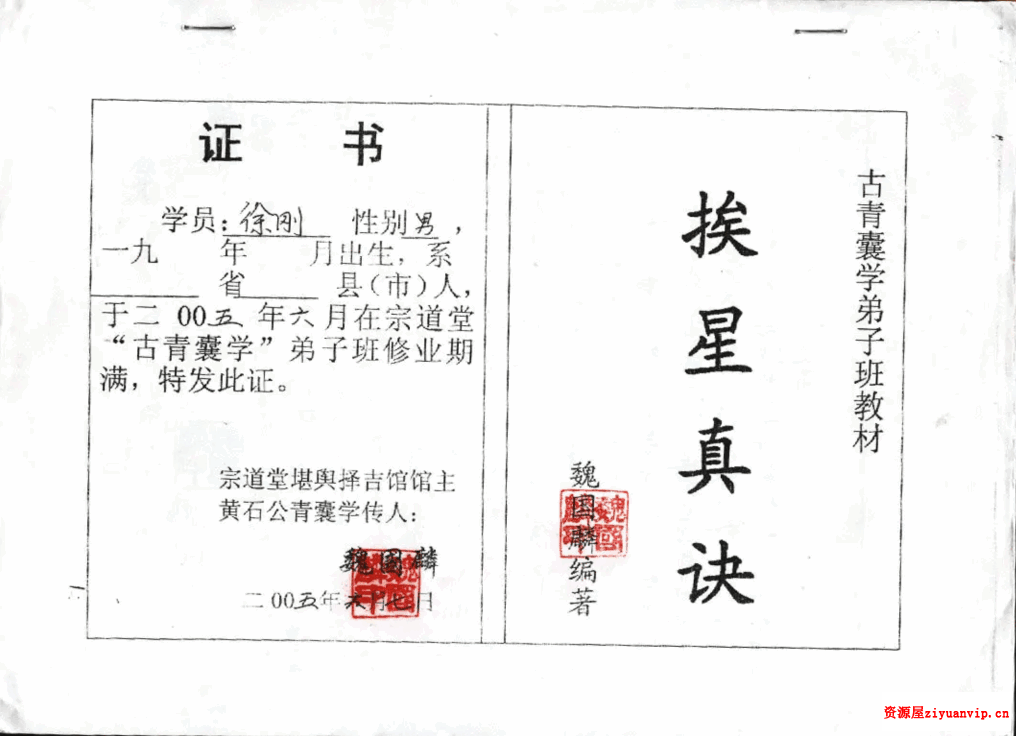 证 书
学员:徐刚 性别男,
一九 年 月出生,系
省 县(市)人,
于二00五年六月在宗道堂
“古青囊学”弟子班修业期
满,特发此证。
宗道堂堪舆择吉馆馆主
黄石公青囊学传人:
魏国麟
二00五年六月七日
古青囊学弟子班教材
挨星真诀
魏国麟编著
资源屋ziyuanvip.cn